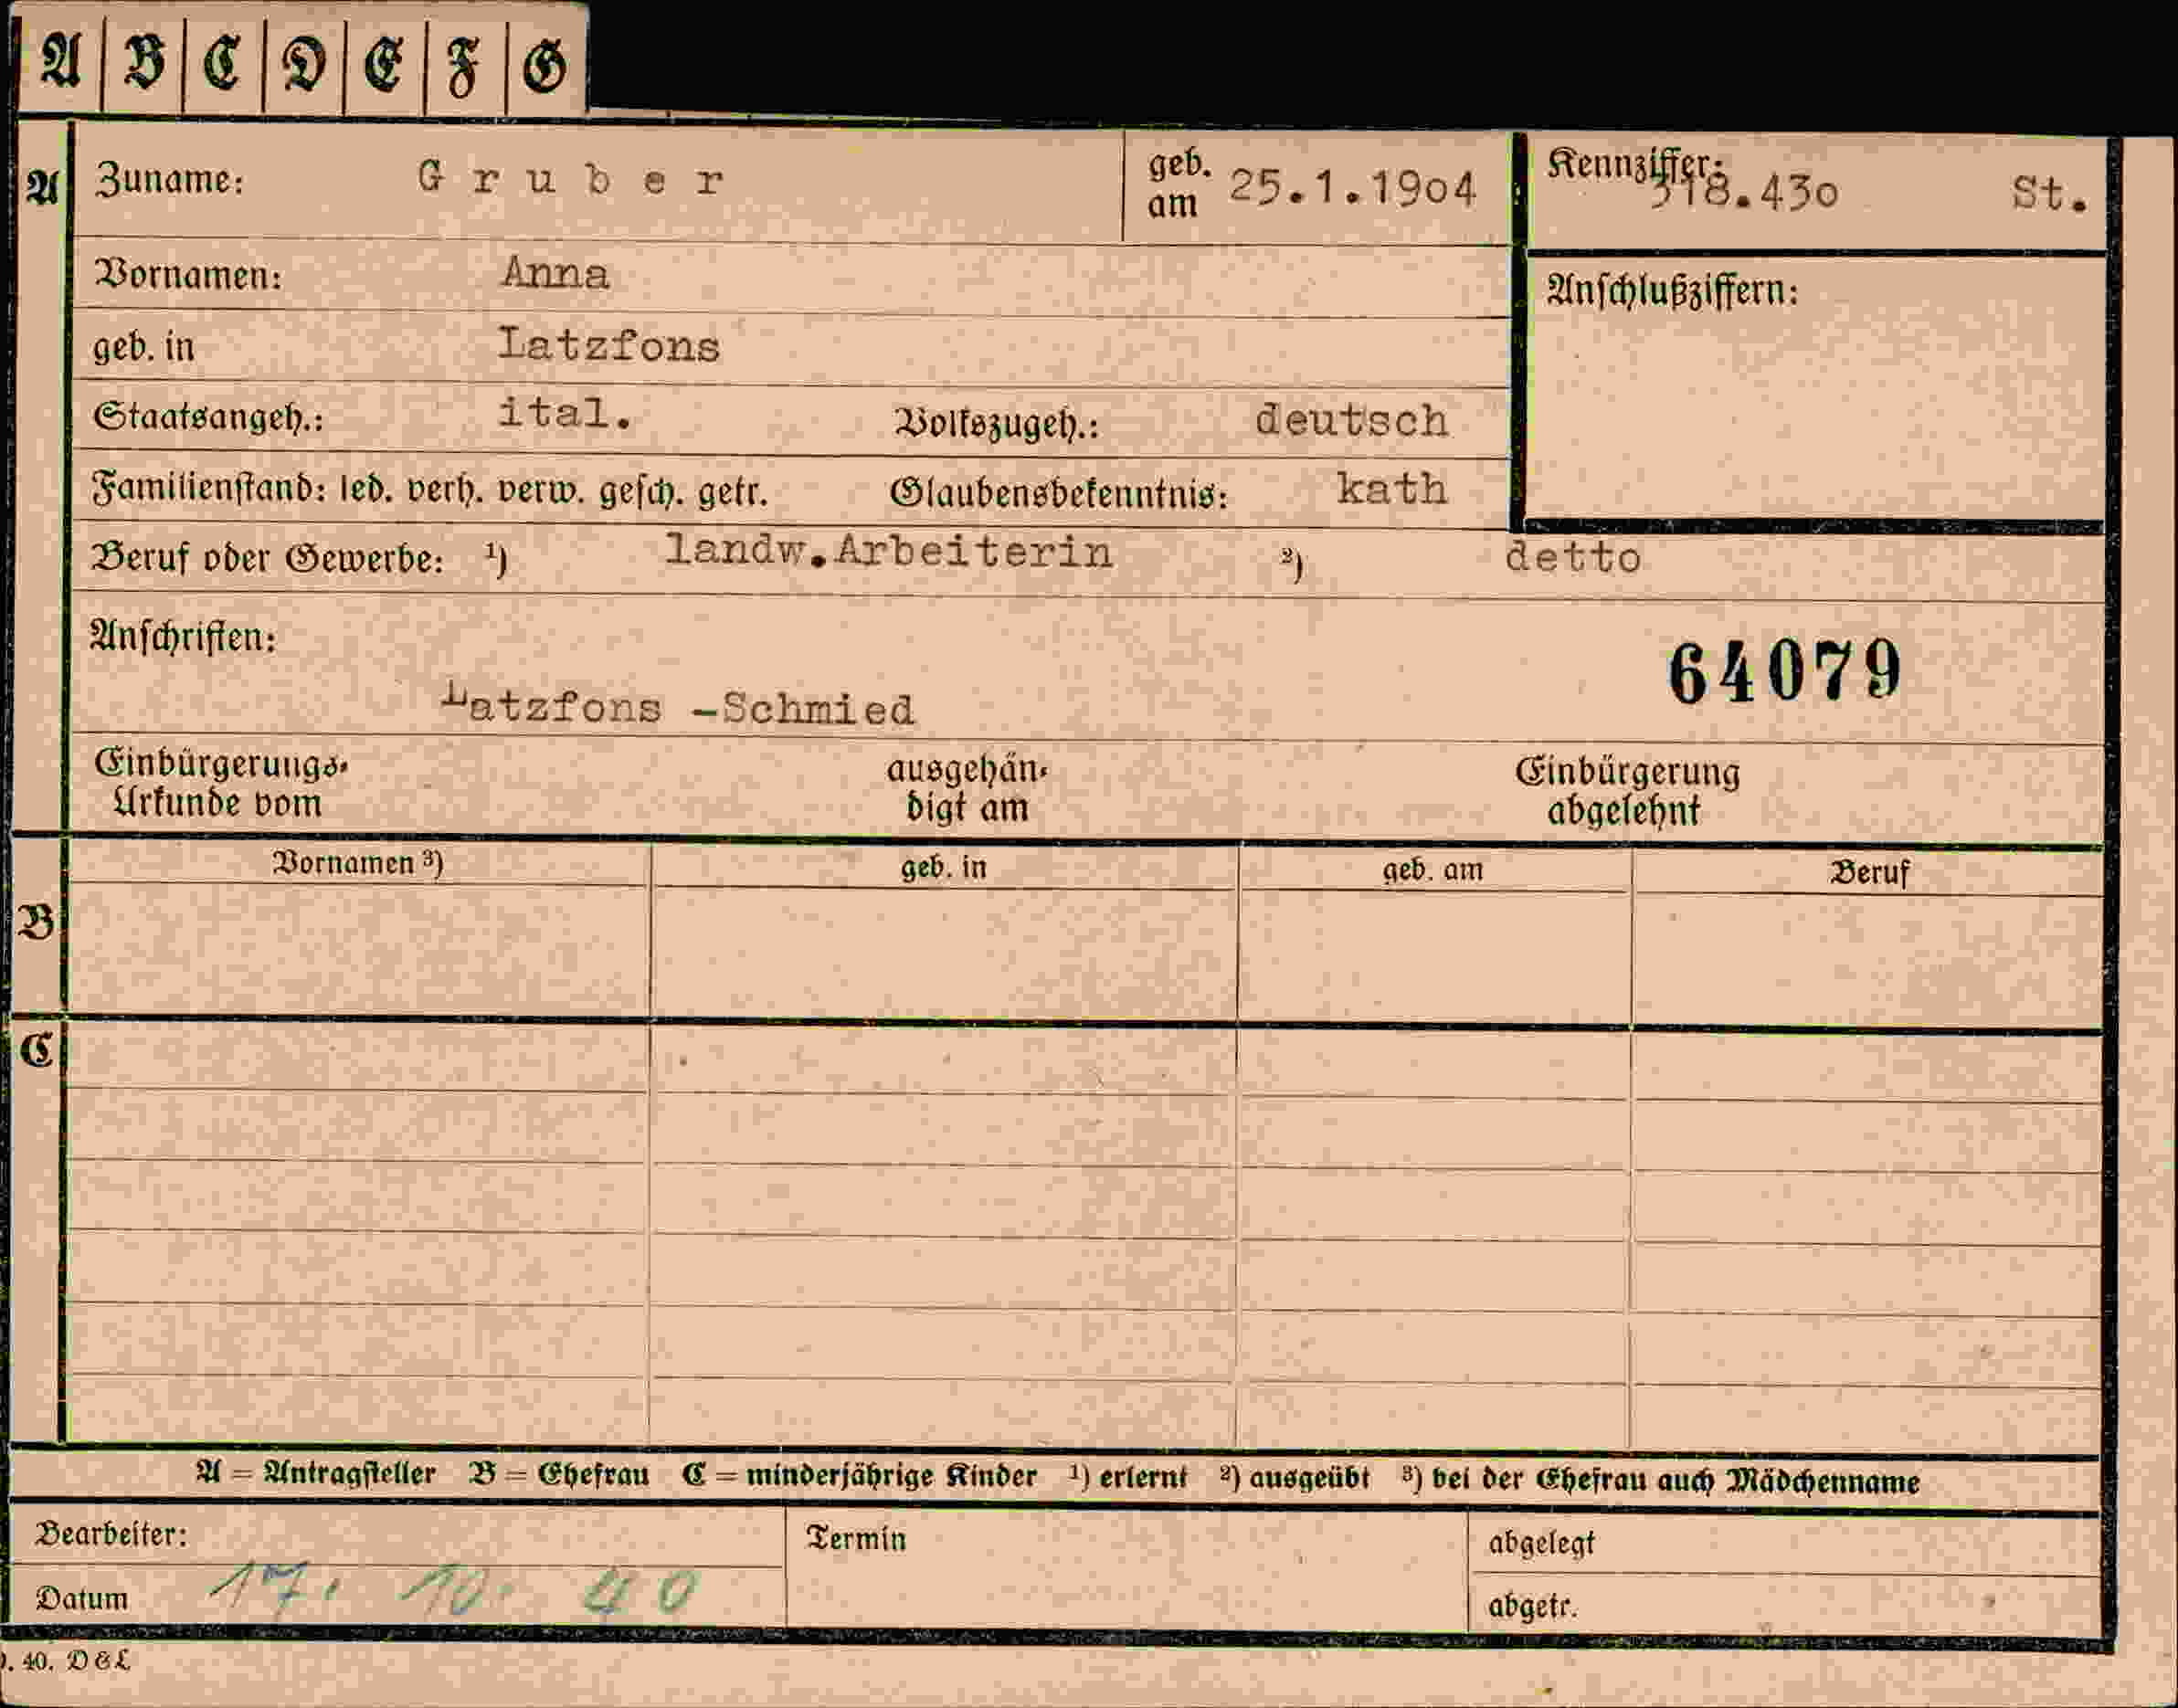 A B C D E F G
A Zuname: Gruber geb. am 25.1.1904 Kennziffer: 318.430 St.
Vornamen: Anna
Anschlußziffern:
geb. in Latzfons
Staatsangeh.: ital. Volkszugeh.: deutsch
Familienstand: led. verh. verw. gesch. getr. Glaubensbekenntnis: kath
Beruf oder Gewerbe: ¹) landw.Arbeiterin ²) detto
Anschriften:
64079
Latzfons -Schmied
Einbürgerungs- ausgehän- Einbürgerung
Urkunde vom digt am abgelehnt
Vornamen ³) geb. in geb. am Beruf
B
C
A = Antragsteller B = Ehefrau C = minderjährige Kinder ¹) erlernt ²) ausgeübt ³) bei der Ehefrau auch Mädchenname
Bearbeiter: Termin abgelegt
Datum 17. 10. 40 abgetr.
. 40. D & L